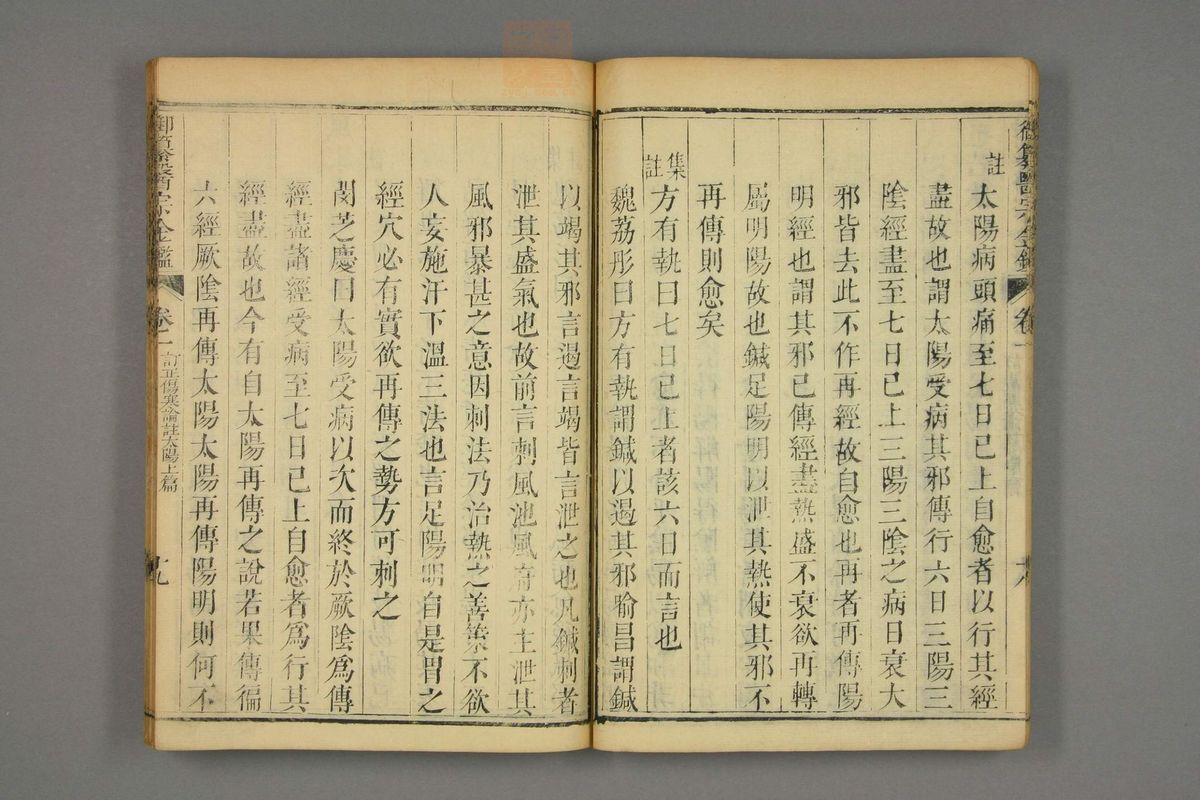 註
太陽病頭痛至七日已上自愈者以行其經
盡故也謂太陽受病其邪傳行六日三陽三
陰經盡至七日已上三陽三陰之病日衰大
邪皆去此不作再經故自愈也再者再傳陽
明經也謂其邪已傳經盡熱盛不衰欲再轉
屬明陽故也鍼足陽明以泄其熱使其邪不
再傳則愈矣
集註
方有執曰七日已上者該六日而言也
魏荔彤曰方有執謂鍼以遏其邪喻昌謂鍼
以竭其邪言遏言竭皆言泄之也凡鍼刺者
泄其盛氣也故前言刺風池風府亦主泄其
風邪暴甚之意因刺法乃治熱之善策不欲
人妄施汗下溫三法也言足陽明自是胃之
經穴必有實欲再傳之勢方可刺之
閔芝慶曰太陽受病以次而終於厥陰爲傳
經盡諸經受病至七日已上自愈者爲行其
經盡故也今有自太陽再傳之說若果傳徧
六經厥陰再傳太陽太陽再傳陽明則何不
御纂醫宗金鑑
卷一
訂正傷寒論註太陽上篇
九